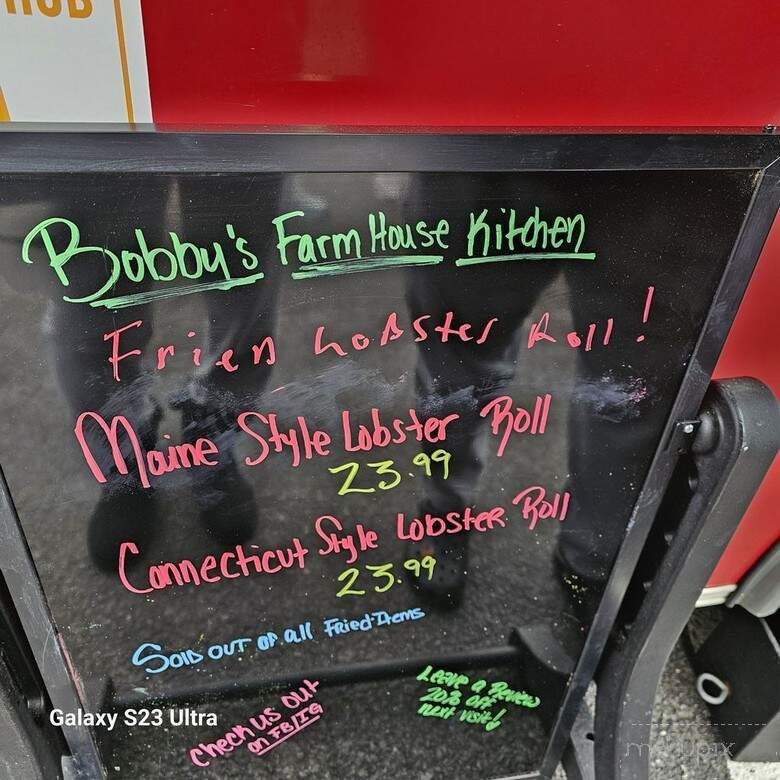 HUB
Bobby's Farm House Kitchen
Frien Lobster Roll!
Maine Style Lobster Roll
23.99
Connecticut Style Lobster Roll
23.99
Sold out of all Fried Items
Leave a Review
20% off
next visit!
Check us out
on FB/IG
Galaxy S23 Ultra